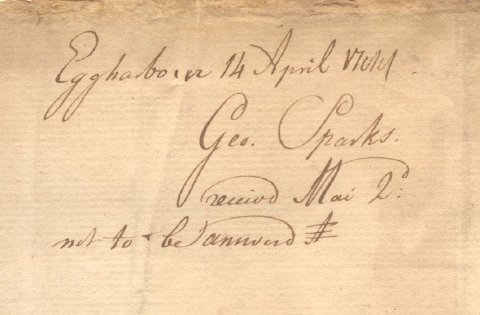 Eggharbour 14 April
Geo. Sparks.
receivd Mai 2d
not to be answerd